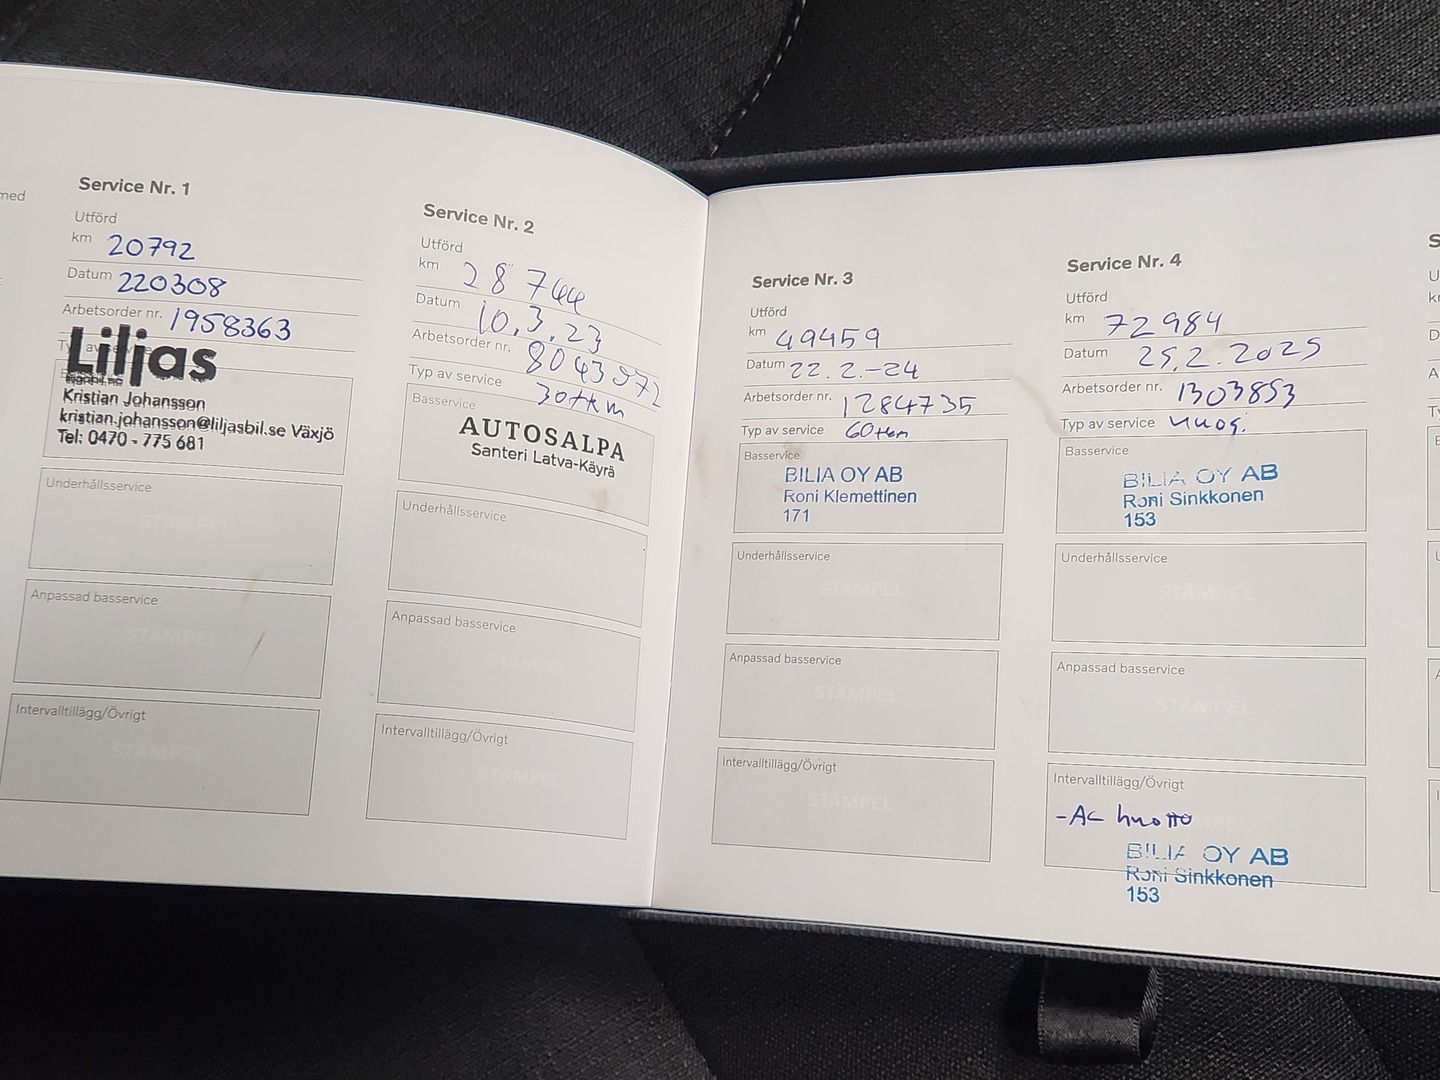 med
Service Nr. 1
Utförd
km 20792
Datum 220308
Arbetsorder nr. 1958363
Liljas
Kristian Johansson
kristian.johansson@liljasbil.se Växjö
Tel: 0470 - 775 681
Underhållsservice
STÄMPEL
Anpassad basservice
STÄMPEL
Intervalltillägg/Övrigt
STÄMPEL
Service Nr. 2
Utförd
km 28744
Datum 10.3.23
Arbetsorder nr. 8043972
Typ av service 30tkm
Basservice
AUTOSALPA
Santeri Latva-Käyrä
Underhållsservice
STÄMPEL
Anpassad basservice
STÄMPEL
Intervalltillägg/Övrigt
STÄMPEL
Service Nr. 3
Utförd
km 49459
Datum 22.2.-24
Arbetsorder nr. 1284735
Typ av service 60tkm
Basservice
BILIA OY AB
Roni Klemettinen
171
Underhållsservice
STÄMPEL
Anpassad basservice
STÄMPEL
Intervalltillägg/Övrigt
STÄMPEL
Service Nr. 4
Utförd
km 72984
Datum 25.2.2025
Arbetsorder nr. 1303853
Typ av service vuos.
Basservice
BILIA OY AB
Roni Sinkkonen
153
Underhållsservice
STÄMPEL
Anpassad basservice
STÄMPEL
Intervalltillägg/Övrigt
-AC huolto
BILIA OY AB
Roni Sinkkonen
153